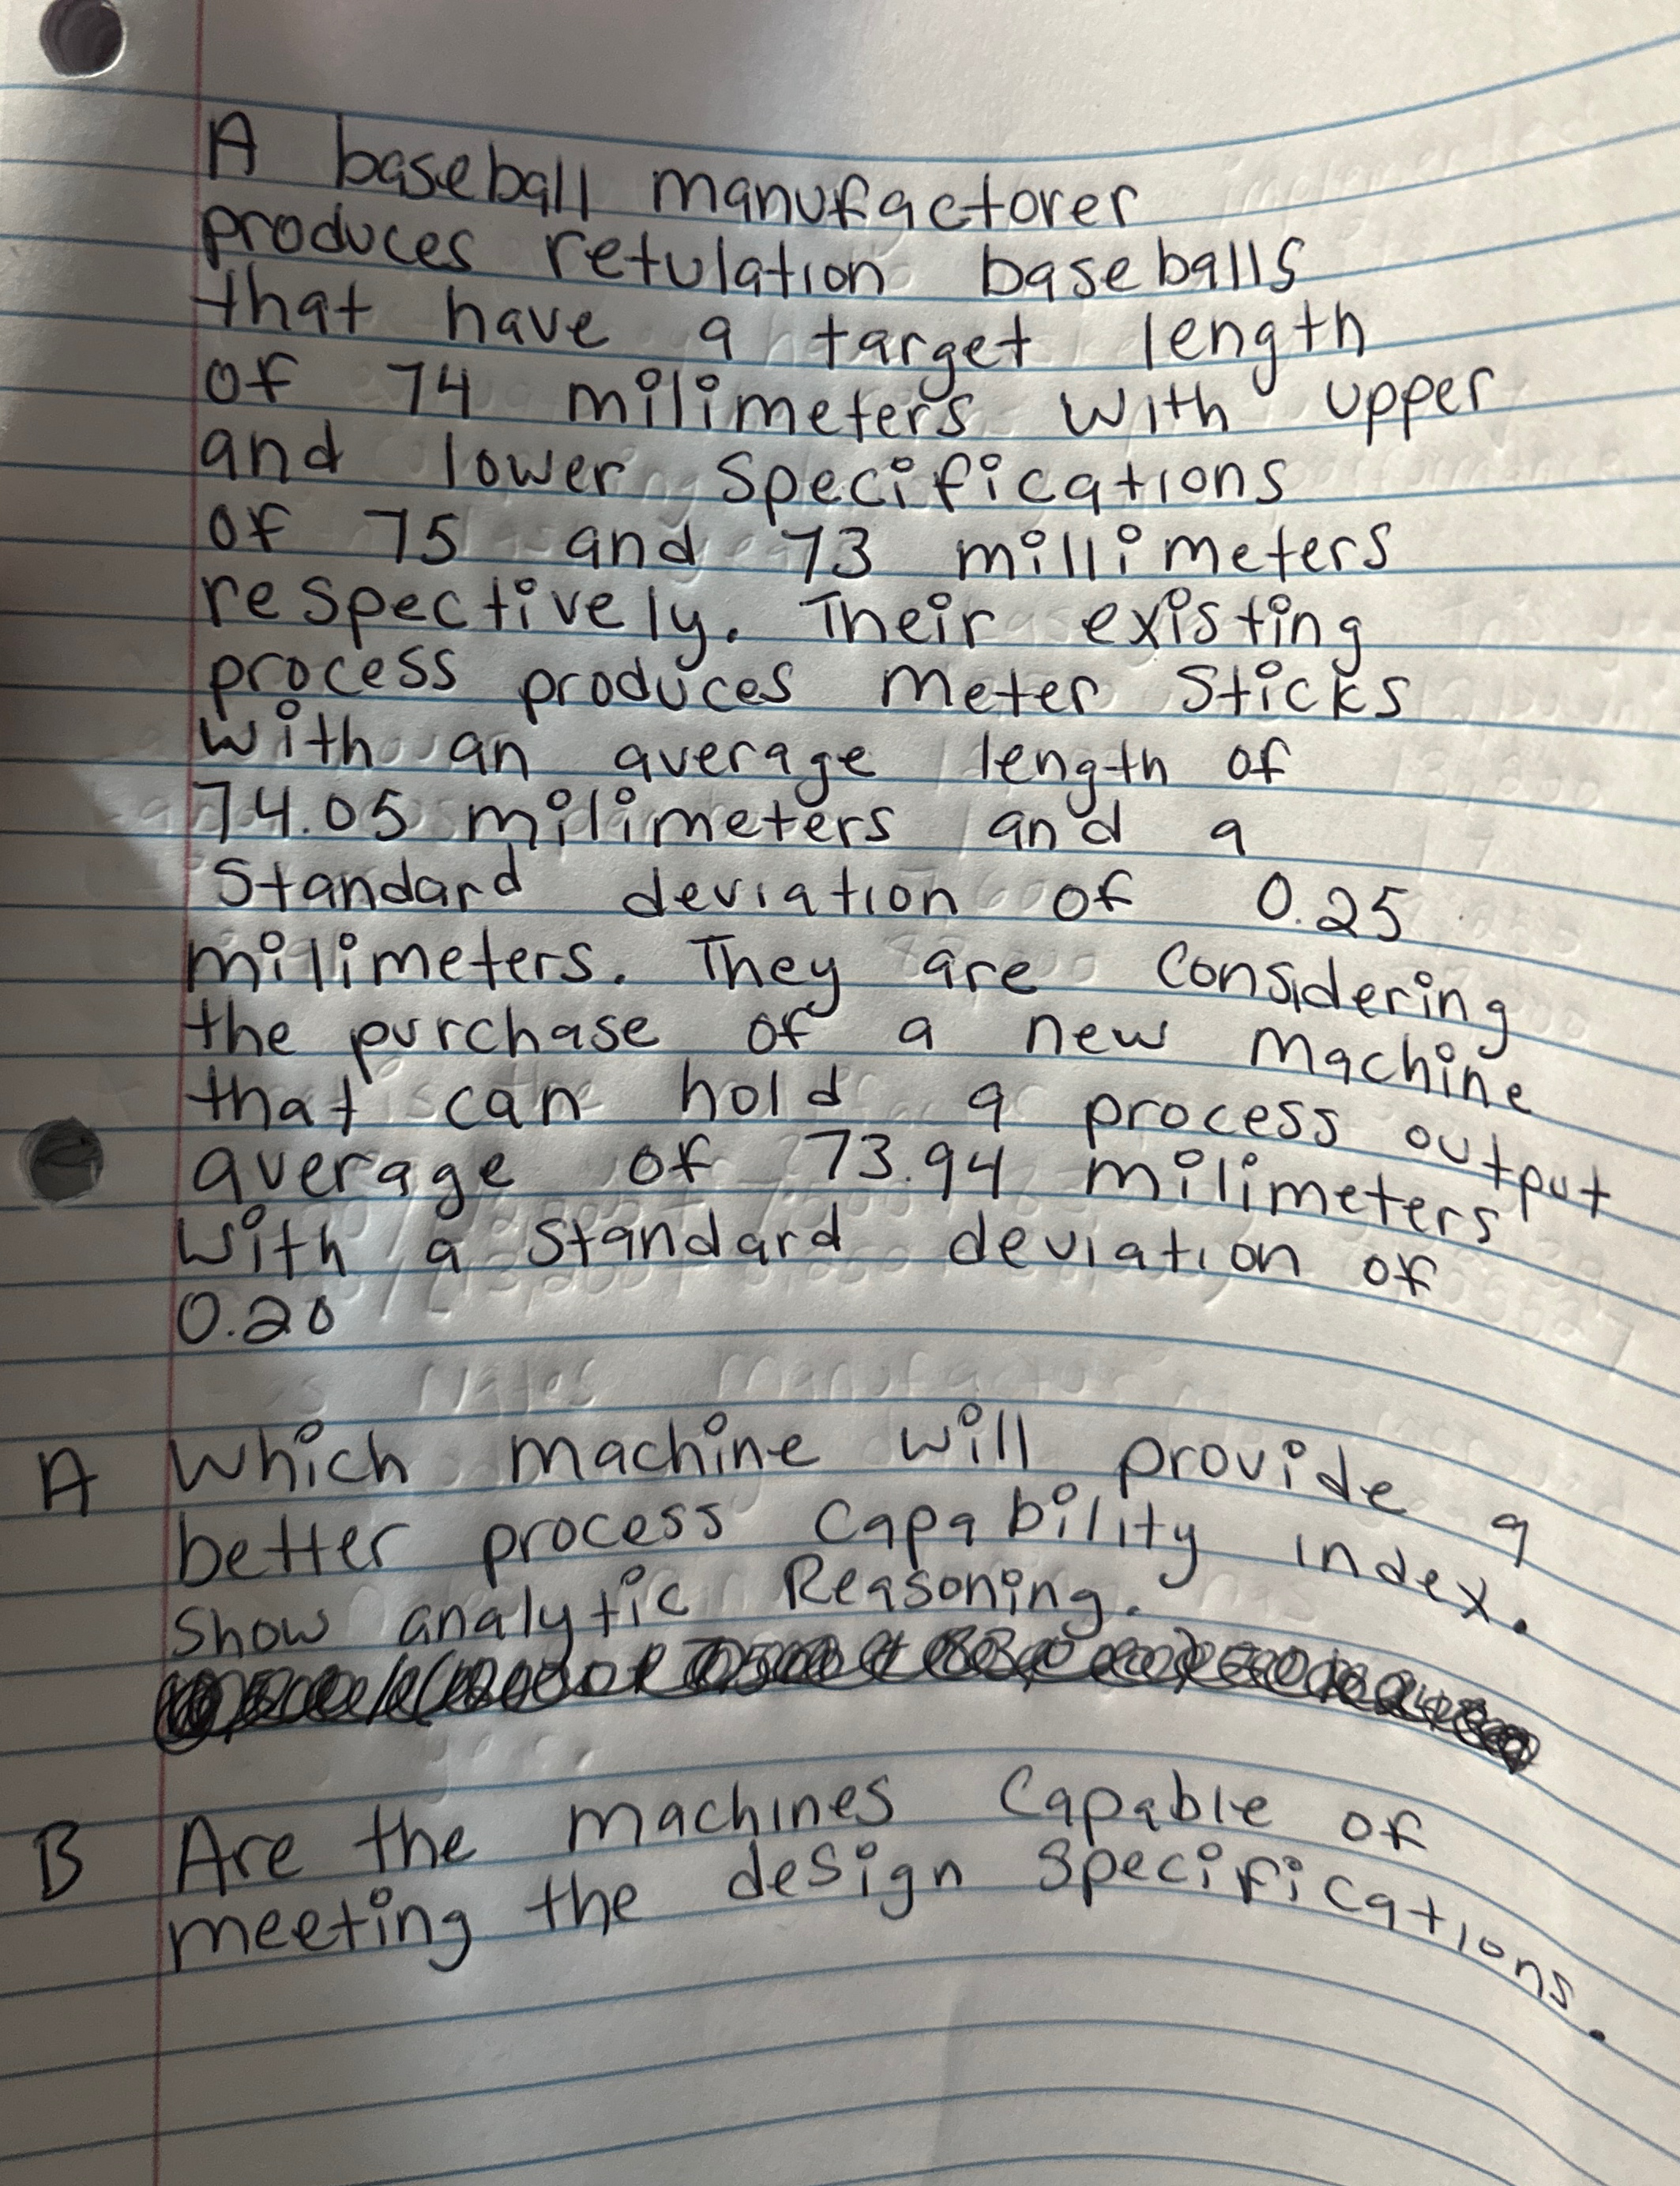 A baseball manufactorer
produces retulation baseballs
that have a target length
of 74 milimeters with upper
and lower specifications
of 75 and 73 millimeters
respectively. Their existing
process produces meter sticks
with an average length of
74.05 milimeters and a
Standard deviation of 0.25
milimeters. They are considering
the purchase of a new machine
that can hold a process output
average of 73.94 milimeters
with a standard deviation of
0.20
A Which machine will provide a
better process capability index.
Show analytic Reasoning.
B Are the machines capable of
meeting the design specifications.